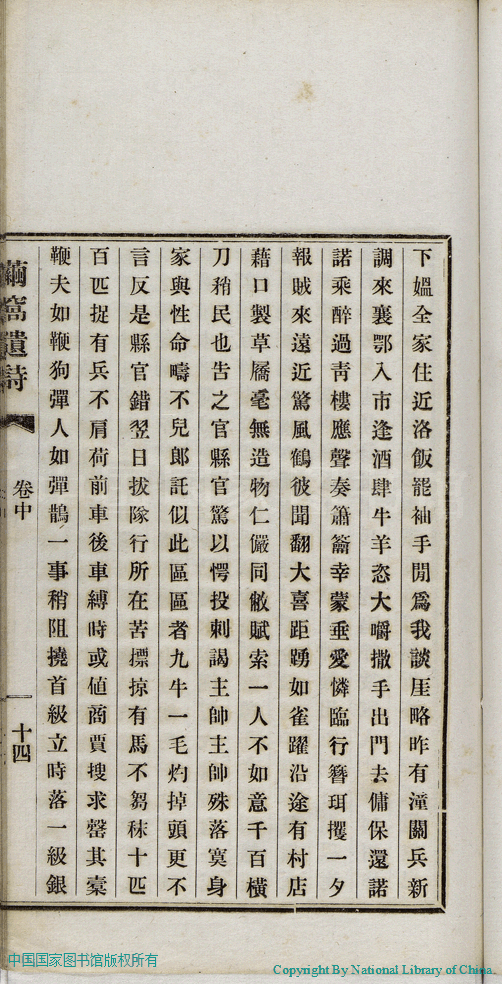 下媼全家住近洛飯罷袖手閒爲我談厓略昨有潼關兵新
調來襄鄂入市逢酒肆牛羊恣大嚼撒手出門去傭保還諾
諾乘醉過靑樓應聲奏簫籥幸蒙垂愛憐臨行簪珥攫一夕
報賊來遠近驚風鶴彼聞翻大喜距踴如雀躍沿途有村店
藉口製草屩毫無造物仁儼同敝賦索一人不如意千百橫
刀矟民也告之官縣官驚以愕投刺謁主帥主帥殊落寞身
家與性命疇不兒郎託似此區區者九牛一毛灼掉頭更不
言反是縣官錯翌日拔隊行所在苦摽掠有馬不芻秣十匹
百匹捉有兵不肩荷前車後車縛時或値商賈搜求罄其橐
鞭夫如鞭狗彈人如彈鵲一事稍阻撓首級立時落一級銀
繭窩遺詩
卷中
十四
中国国家图书馆版权所有
Copyright By National Library of China.